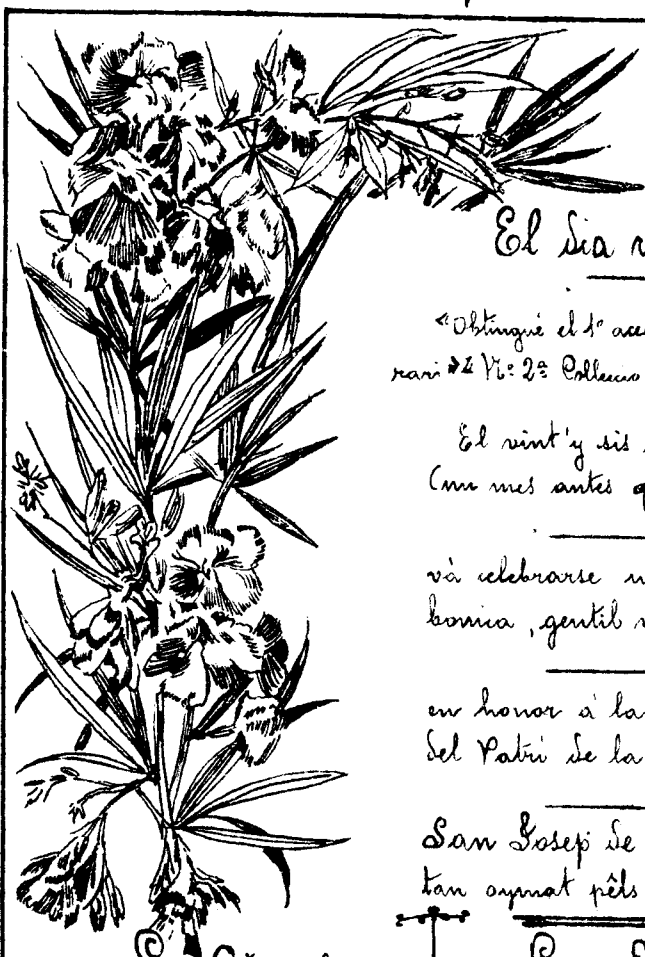 El dia
"Obtingué el 1er
rari" Nº 2ª Collecció
El vint'y sis
(un mes antes
vá celebrarse
bonica, gentil
en honor á la
del Patri de la
San Josep de
tan aymat pêls